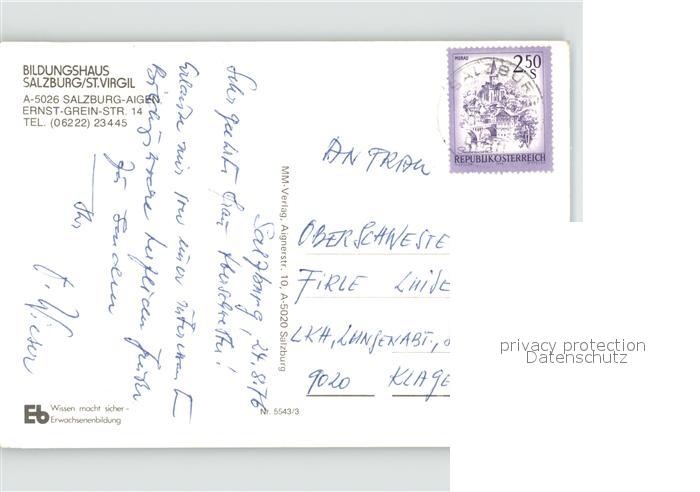 BILDUNGSHAUS
SALZBURG/ST.VIRGIL
A-5026 SALZBURG-AIGEN
ERNST-GREIN-STR. 14
TEL. (06222) 23445
Salzburg, 24.8.76
Sehr geehrte Frau Oberschwester!
Erlaube mir von einer
herzlichen
zu senden
Ihr
MM-Verlag, Aignerstr. 10, A-5020 Salzburg
MURAU
2.50
S
SALZBURG
REPUBLIK ÖSTERREICH
AN FRAU
OBERSCHWESTE
FIRLE LUISE
LKH, LUNGENABT.,
9020 KLAGE
privacy protection
Datenschutz
Eb Wissen macht sicher -
Erwachsenenbildung
Nr. 5543/3